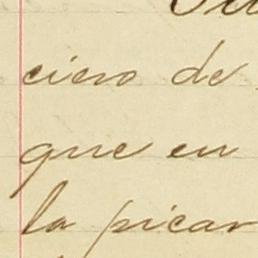 ciero de
que en
la picar